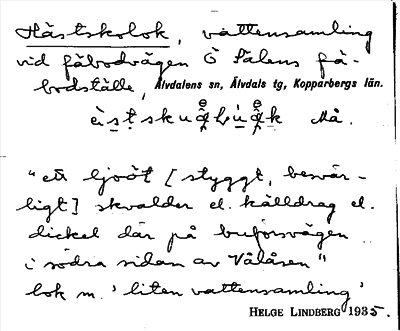 Hästskolok, vattensamling
vid fäbodvägen Ö Sälens fä-
bodställe, Älvdalens sn, Älvdals tg, Kopparbergs län.
Må.
"ett ljööt [styggt, besvär-
ligt] skvalder el. källdrag el.
dickel där på buförsvägen
i södra sidan av Vålåsen"
lok m. 'liten vattensamling'
HELGE LINDBERG 1935.